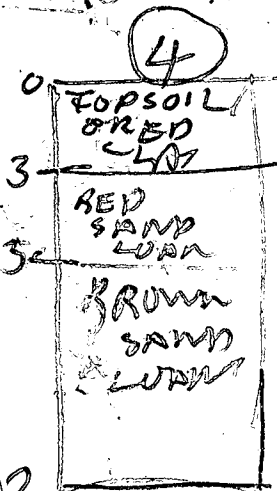 4
0
TOPSOIL
& RED
3
RED
SAND
LOAM
5
BROWN
SAND
LOAM